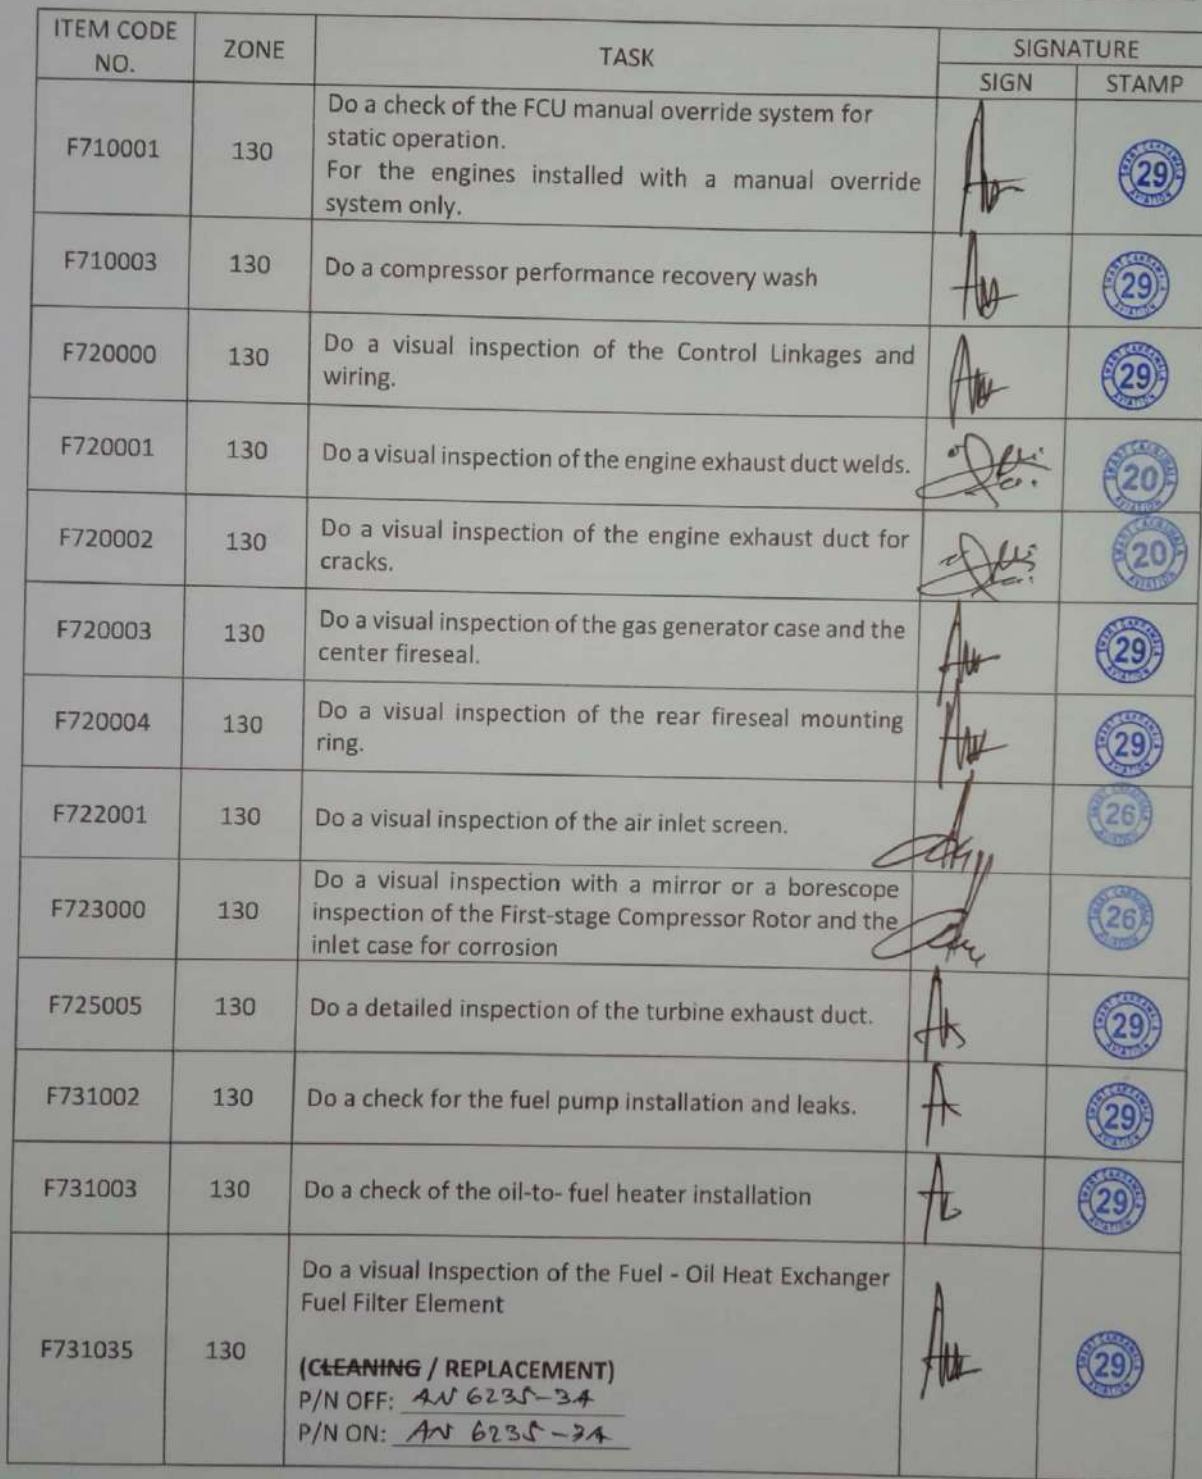 ITEM CODE NO. ZONE TASK SIGNATURE
SIGN STAMP
F710001 130 Do a check of the FCU manual override system for
static operation.
For the engines installed with a manual override
system only.
29
F710003 130 Do a compressor performance recovery wash 29
F720000 130 Do a visual inspection of the Control Linkages and
wiring.
29
F720001 130 Do a visual inspection of the engine exhaust duct welds. 20
F720002 130 Do a visual inspection of the engine exhaust duct for
cracks.
20
F720003 130 Do a visual inspection of the gas generator case and the
center fireseal.
29
F720004 130 Do a visual inspection of the rear fireseal mounting
ring.
29
F722001 130 Do a visual inspection of the air inlet screen. 26
F723000 130 Do a visual inspection with a mirror or a borescope
inspection of the First-stage Compressor Rotor and the
inlet case for corrosion
26
F725005 130 Do a detailed inspection of the turbine exhaust duct. 29
F731002 130 Do a check for the fuel pump installation and leaks. 29
F731003 130 Do a check of the oil-to- fuel heater installation 29
F731035 130 Do a visual Inspection of the Fuel - Oil Heat Exchanger
Fuel Filter Element
(CLEANING / REPLACEMENT)
P/N OFF: AN 6235-3A
P/N ON: AN 6235-3A
29